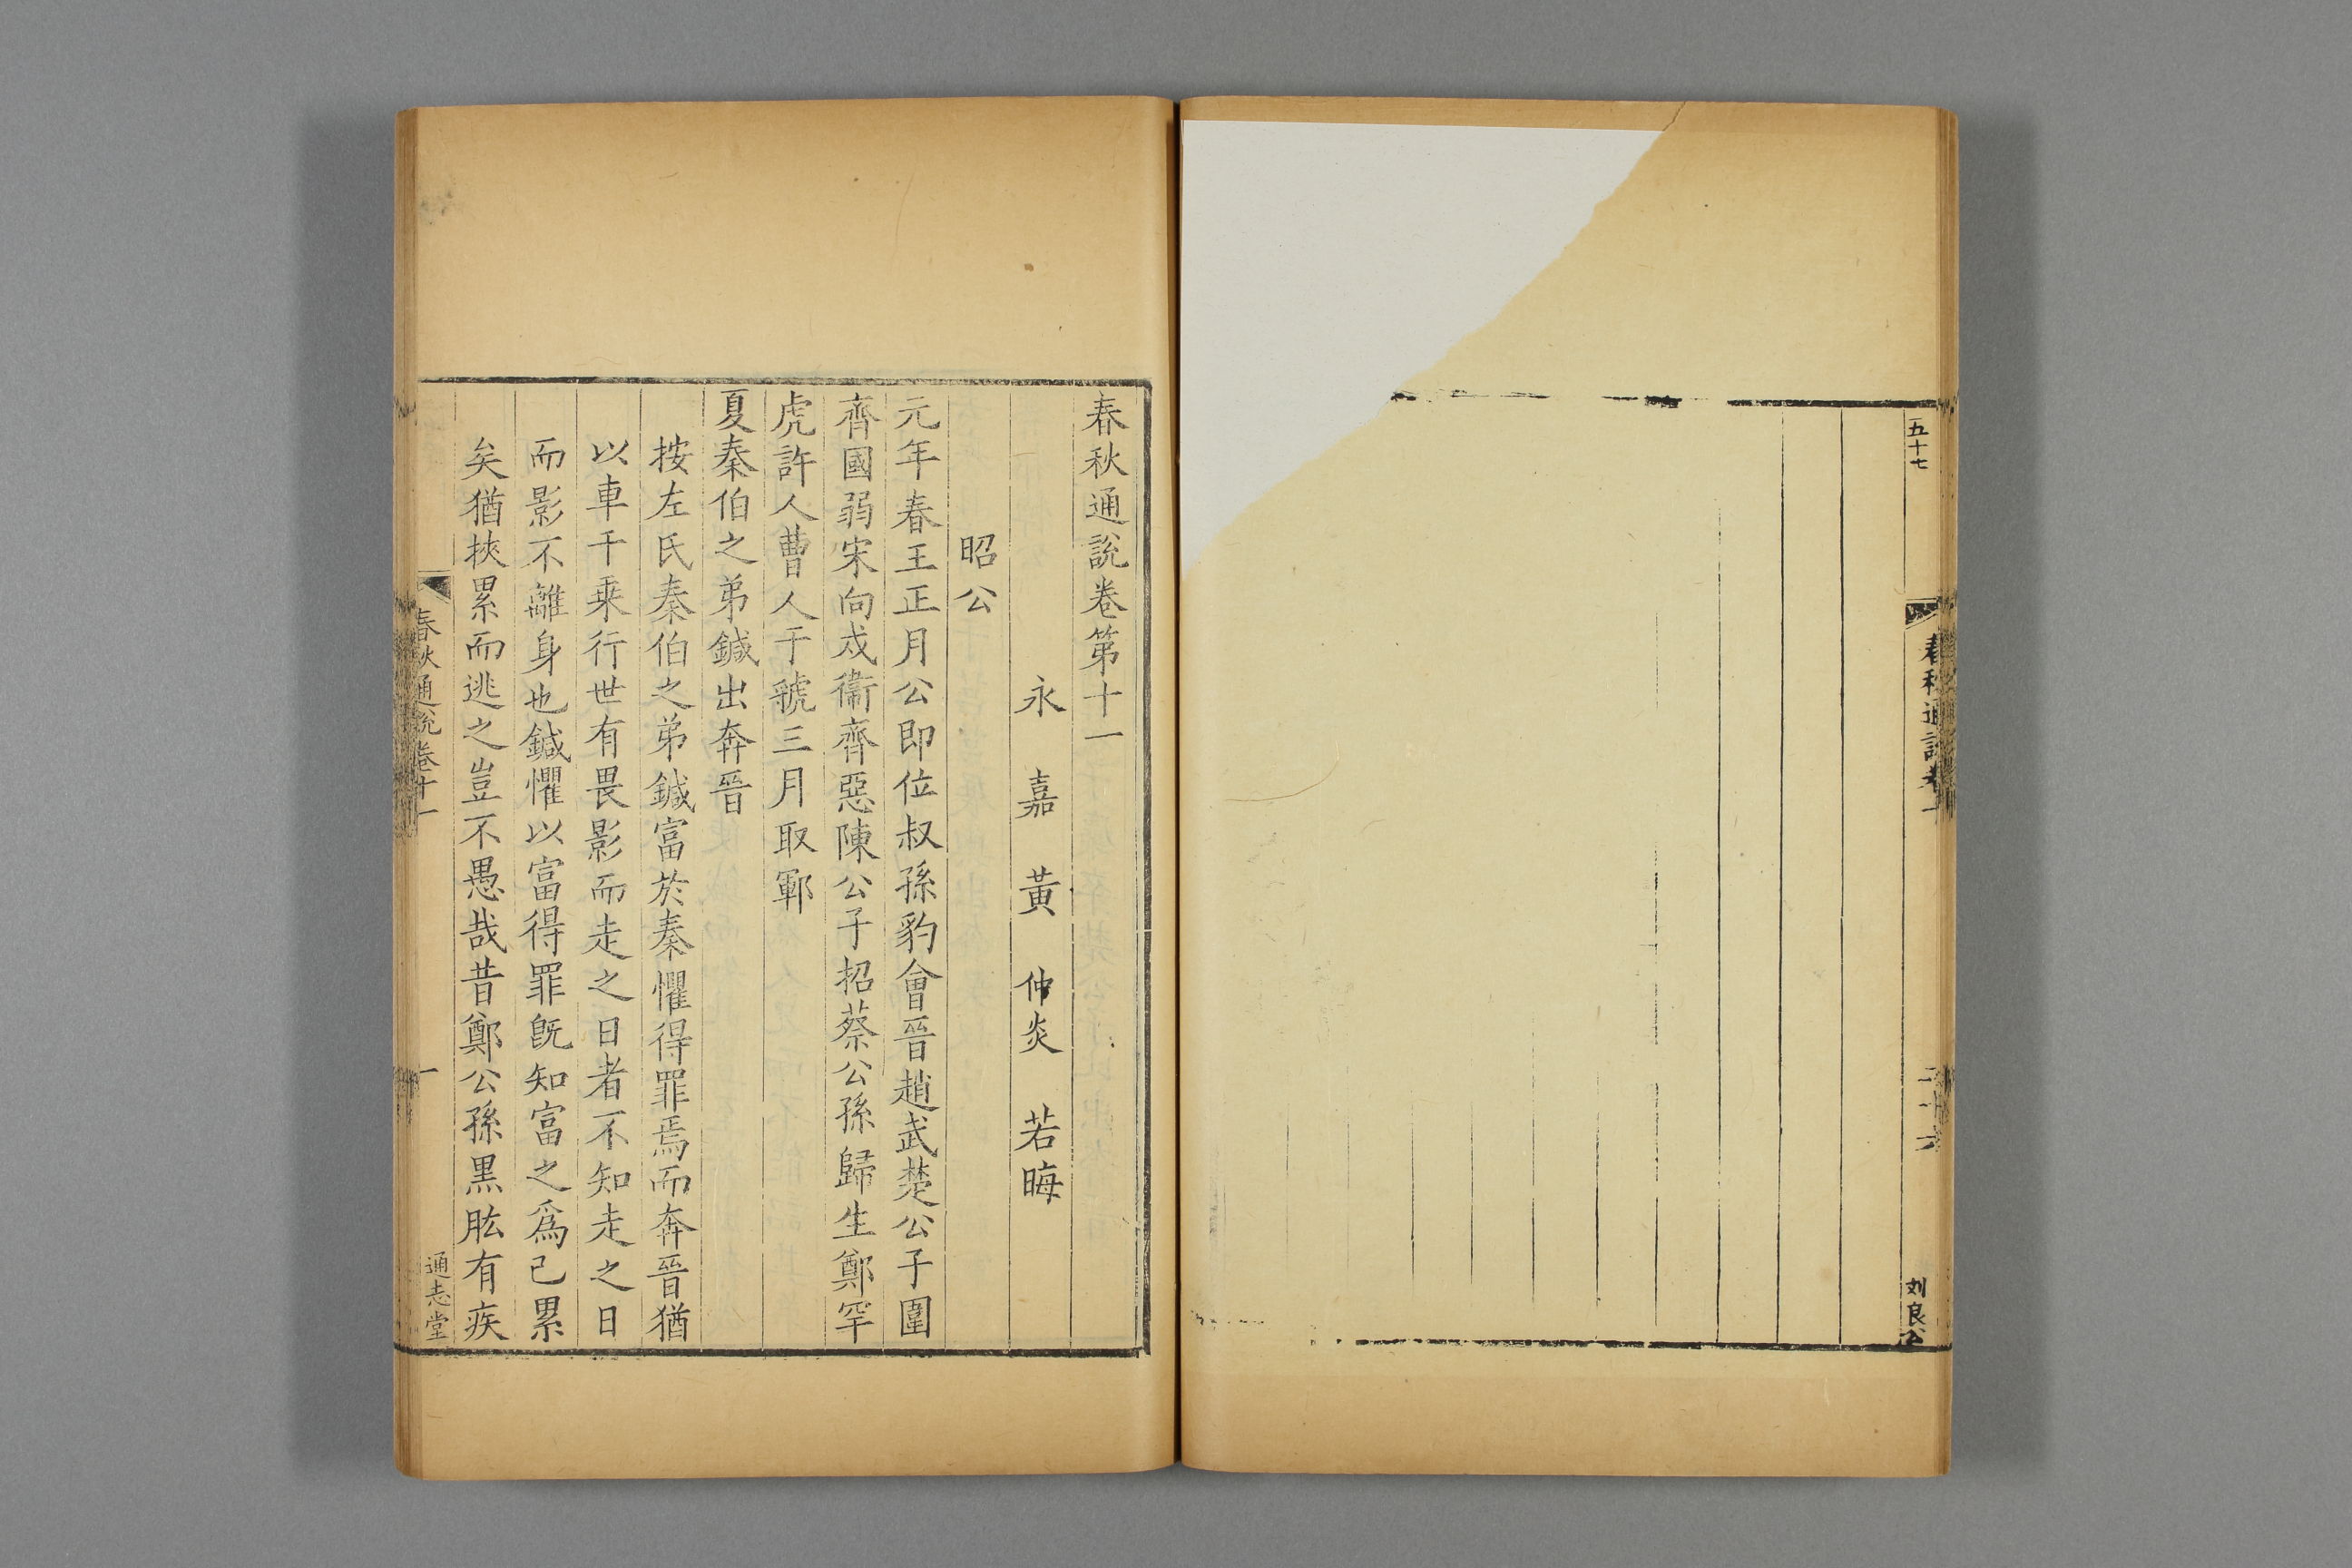 五十七
春秋通說卷十
二十六
刘良公
春秋通說卷第十一
永嘉黃仲炎若晦
昭公
元年春王正月公即位叔孫豹會晉趙武楚公子圍
齊國弱宋向戍衞齊惡陳公子招蔡公孫歸生鄭罕
虎許人曹人于虢三月取鄆
夏秦伯之弟鍼出奔晉
按左氏秦伯之弟鍼富於秦懼得罪焉而奔晉猶
以車千乗行世有畏影而走之日者不知走之日
而影不離身也鍼懼以富得罪旣知富之爲己累
矣猶挾累而逃之豈不愚哉昔鄭公孫黒肱有疾
春秋通說卷十一
一
通志堂